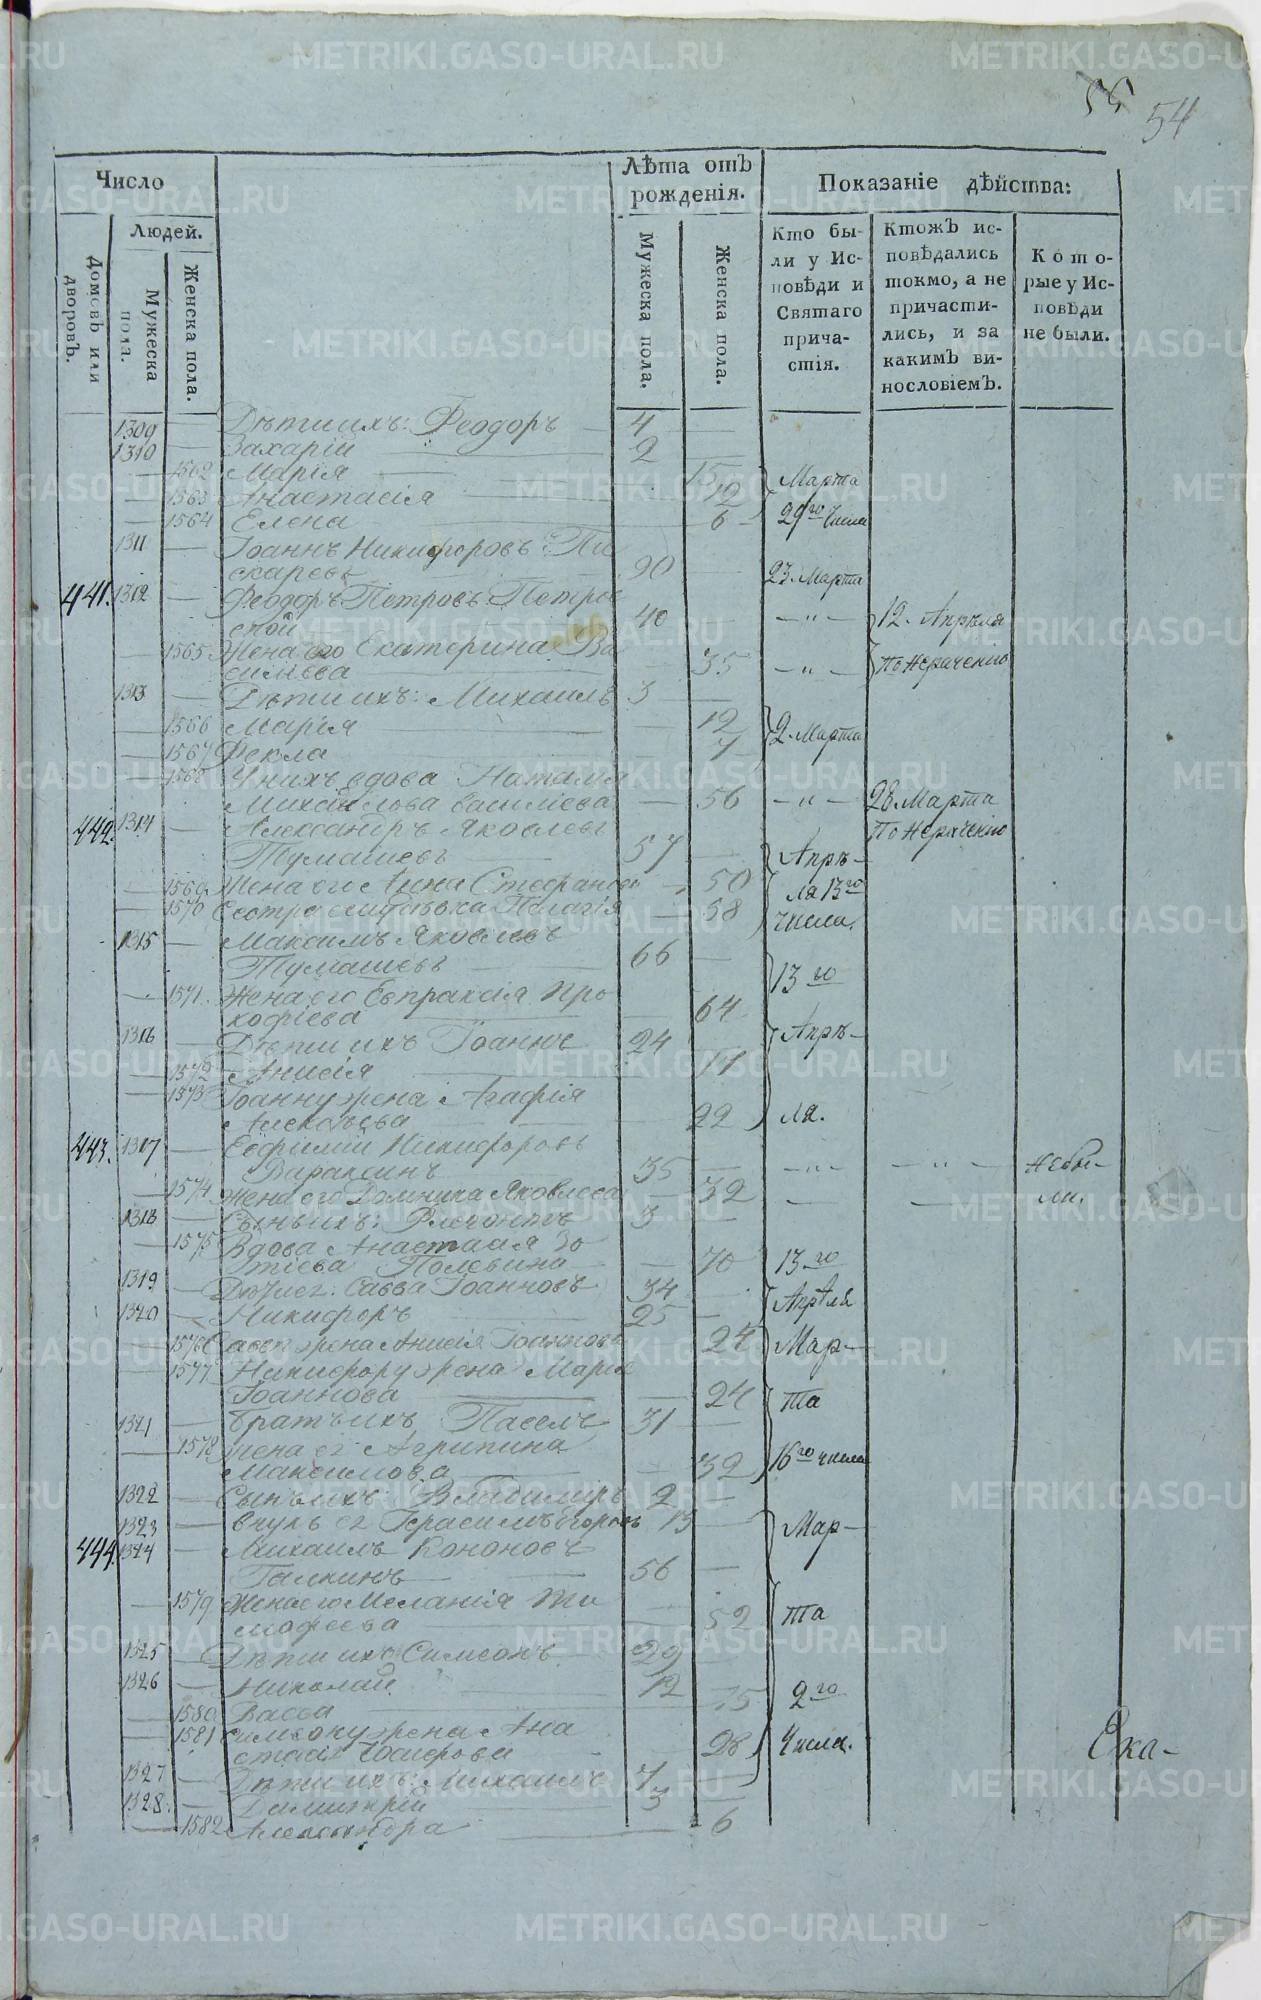 55 54
Число
Лѣта отъ рожденія.
Показаніе дѣйства:
Домовъ или дворовъ.
Людей.
Мужеска пола.
Женска пола.
Мужеска пола.
Женска пола.
Кто были у Исповѣди и Святаго причастія.
Ктожъ исповѣдались токмо, а не причастились, и за какимъ винословіемъ.
Которые у Исповѣди не были.
1309 — Дѣти ихъ: Феодоръ — 4 —
1310 — Захарій — 2 —
— 1562 Марія — 15 Марта
— 1563 Анастасія — 12
— 1564 Елена — 6 — 29го числа
1311 — Іоаннъ Никифоровъ Пи
скаревъ — 90 — 23. Марта
441. 1312 — Феодоръ Петровъ Петров
ской — 40 — „ — 12. Апрѣля
— 1565 Жена его Екатерина Ва
сильева — 35 — „ — По нераченію
1313 — Дѣти ихъ: Михаилъ 3 —
— 1566 Марія — 12 2. Марта
— 1567 Фекла — 7
— 1568 У нихъ вдова Наталія
Михайлова Василіева — 56 — „ — 28 Марта
442. 1314 — Александръ Яковлевъ По нераченію
Тумашевъ — 57 — Апрѣ-
— 1569 Жена его Анна Стефанова — 50 ля 13го
— 1570 Сестра Пелагія — 58 числа.
1315 — Максимъ Яковлевъ
Тумашевъ — 66 — 13го
— 1571. Жена его Евпраксія Про
кофіева — 64
1316 — Дѣти ихъ Іоаннъ 24 — Апрѣ-
— 1572 Анисія — 17
— 1573 Іоанну жена Агафія
Алексѣева — 22 ля.
443. 1317 — Евфимій Никифоровъ
Вараксинъ 35 — „ — — „ — не бы-
— 1574 Жена его Домника Яковлева — 32 — — ли.
1318 — Сынъ ихъ: 3 —
— 1575 Вдова Анастасія Зо
тіева — 70 13го
1319 — Дѣти ег: Савва Іоанновъ 34 — Апрѣля
1320 — Никифоръ — 25 —
— 1576 Саввы жена Анисія Іоаннова 24 Мар-
— 1577 Никифору жена Марія
Іоаннова — 24 та
1321 — Братъ ихъ Павелъ 31 —
— 1578 Жена ег Агрипина
Максимова — 32 16го числа
1322 — Сынъ ихъ: Владимиръ 2 —
1323 — Внукъ ег Герасимъ Егоровъ 13 — Мар-
444. 1324 — Михаилъ Кононовъ
Галкинъ — 56 —
— 1579 Жена его Меланія Ти
мофеева — 52 та
1325 — Дѣти ихъ Симеонъ — 29
1326 — Николай — 12
— 1580 Васса — 15 2го
— 1581 Симеону жена Ана
стасія — 28 числа.
1327 — Дѣти ихъ: Михаилъ 7 —
1328. — Димитрій — 3 —
— 1582 Александра — 6
Ека-